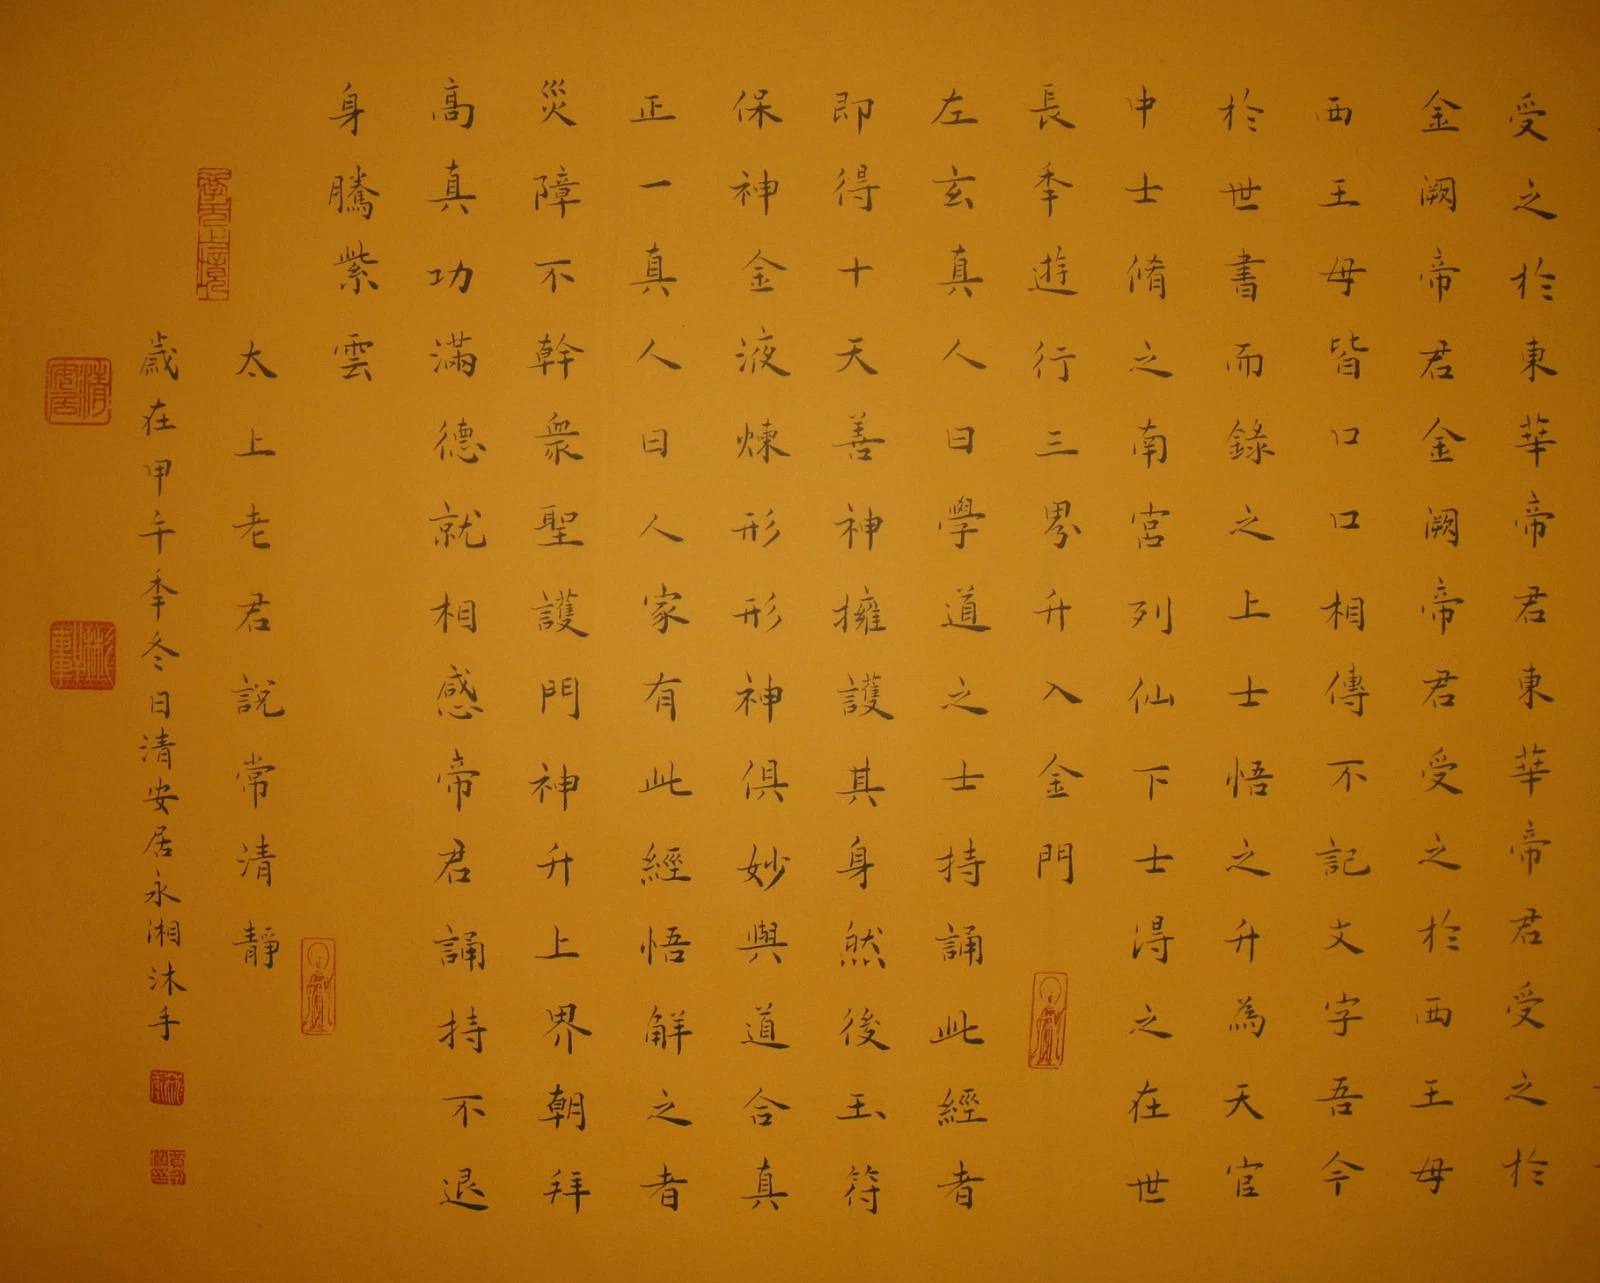 受之於東華帝君東華帝君受之於
金闕帝君金闕帝君受之於西王母
西王母皆口口相傳不記文字吾今
於世書而錄之上士悟之升為天官
中士脩之南宮列仙下士得之在世
長秊遊行三界升入金門
左玄真人曰學道之士持誦此經者
即得十天善神擁護其身然後玉符
保神金液煉形形神俱妙與道合真
正一真人曰人家有此經悟解之者
災障不幹衆聖護門神升上界朝拜
高真功滿德就相感帝君誦持不退
身騰紫雲
太上老君說常清靜
歲在甲午秊冬日清安居永湘沐手